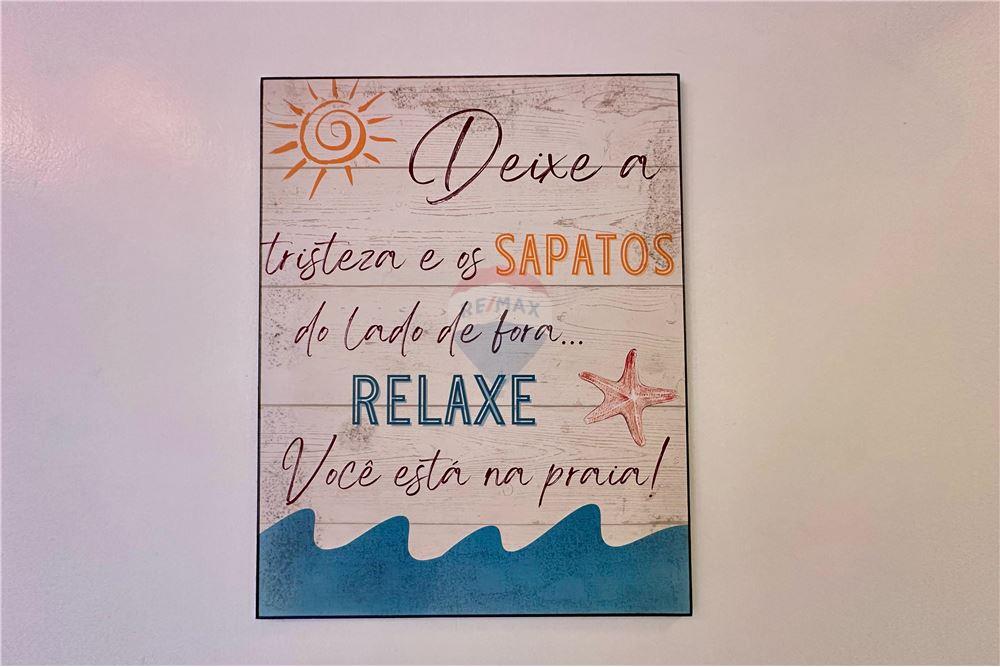 Deixe a
tristeza e os SAPATOS
RE/MAX
do lado de fora...
RELAXE
Você está na praia!